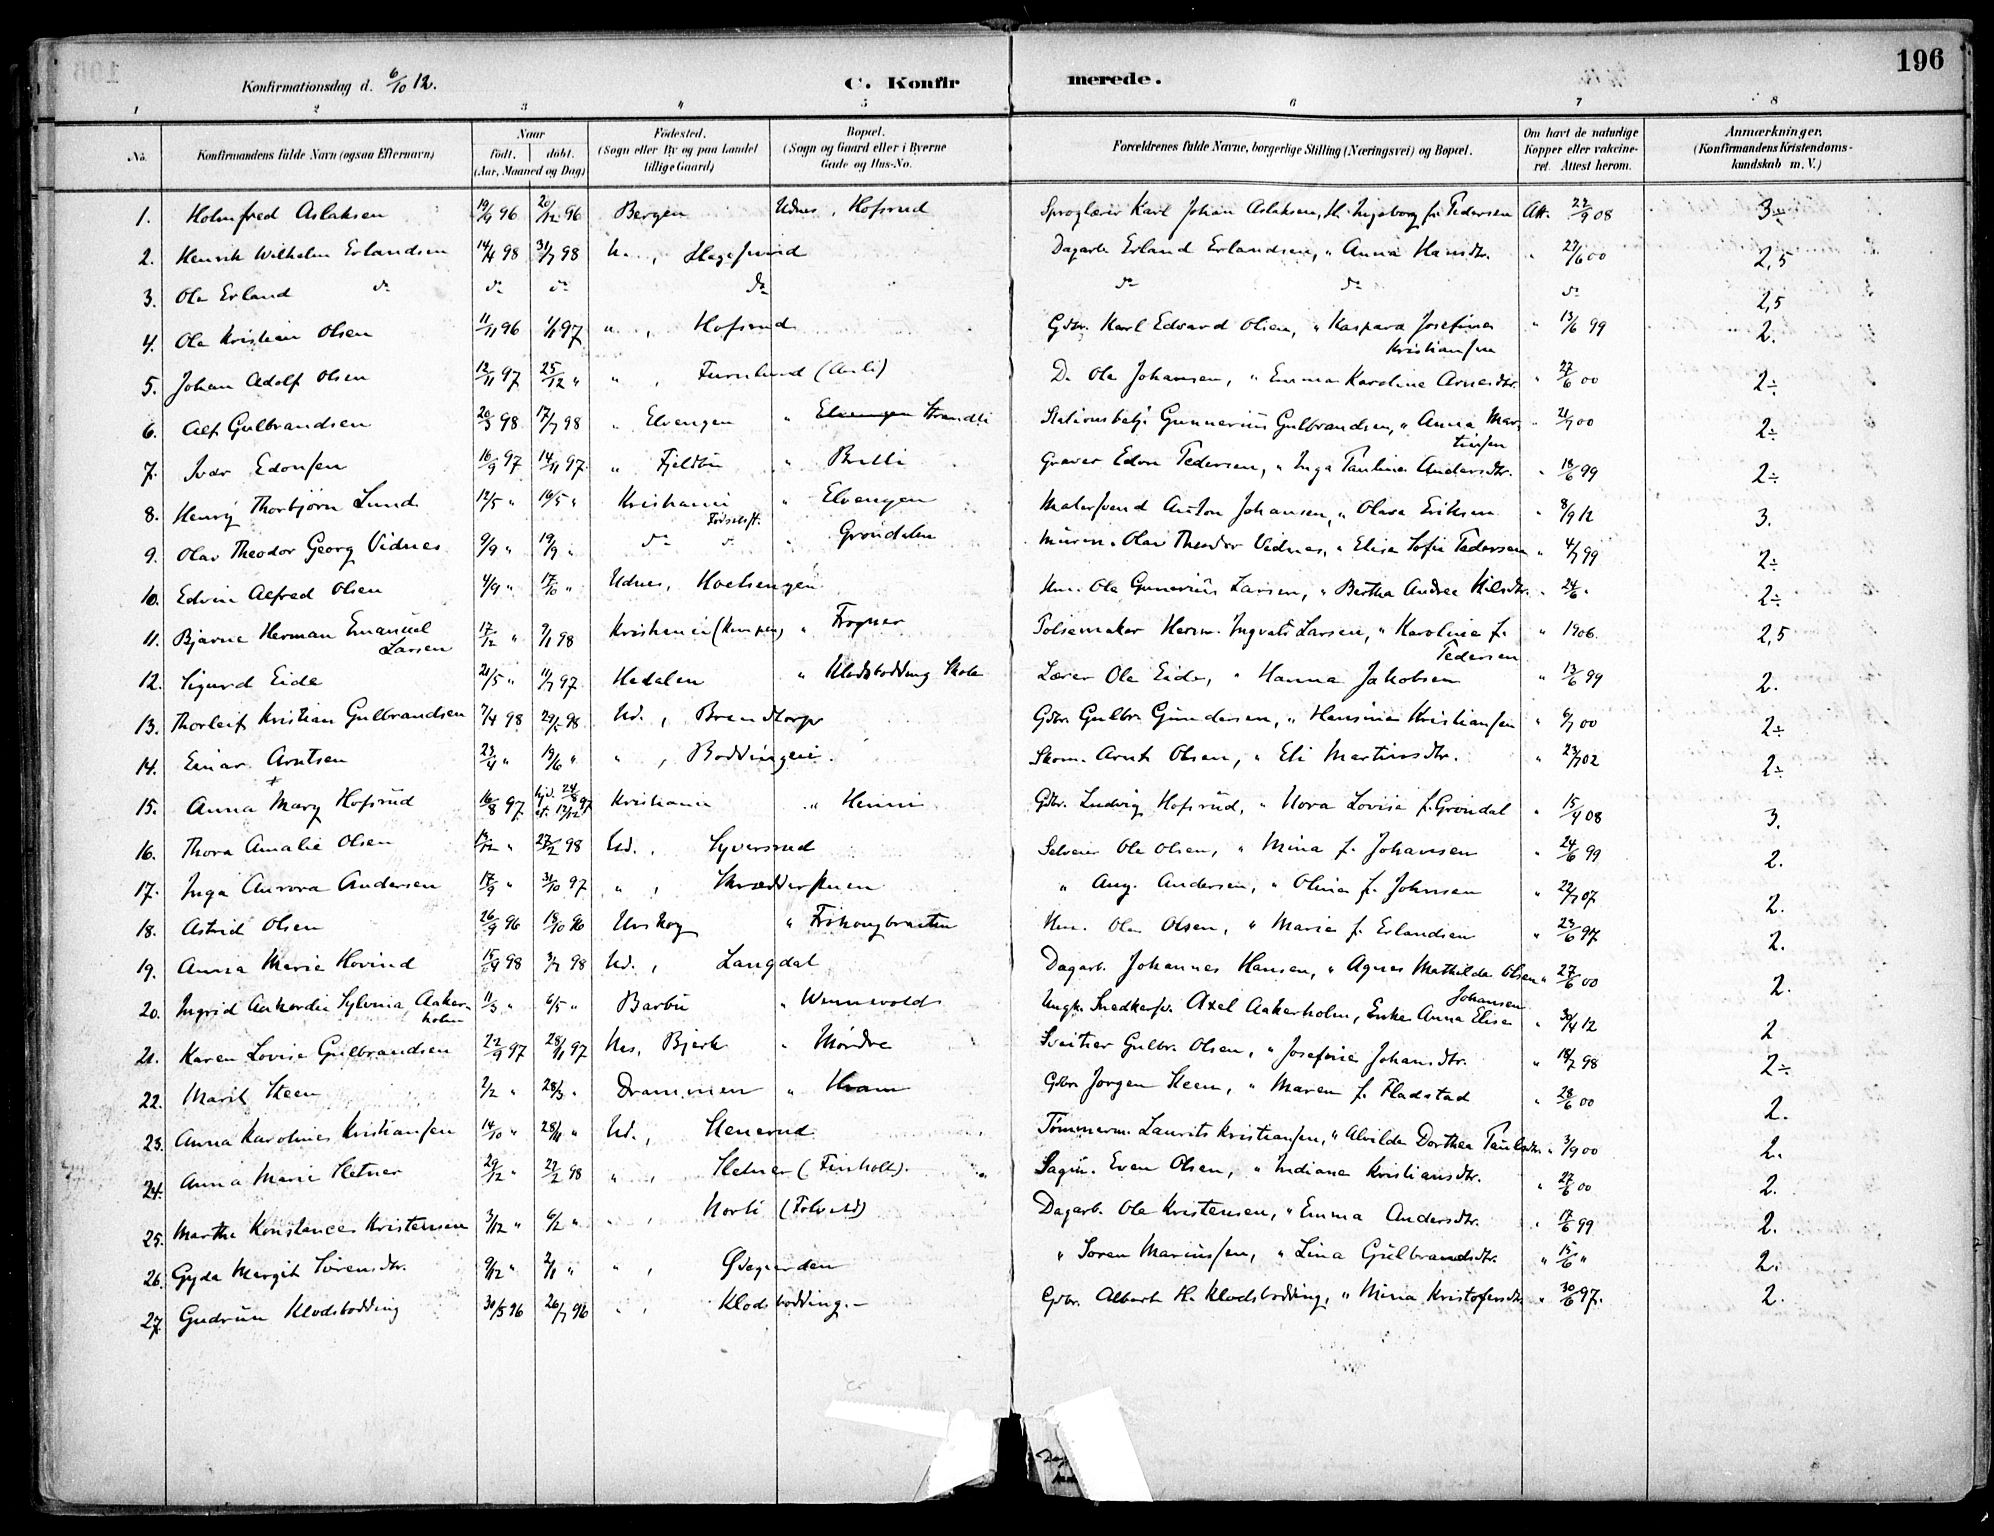 196
Konfirmationsdag d. 6/10 12. C. Konfirmerede.
1 2 3 " 5 6 7 8
No. Konfirmandens fulde Navn (ogsaa Efternavn) Naar født. døbt. (Aar, Maaned og Dag) Fødested. (Sogn eller By og paa Landet tillige Gaard) Bopæl. (Sogn og Gaard eller i Byerne Gade og Hus-No. Forældrenes fulde Navne, borgerlige Stilling (Næringsvei) og Bopæl. Om havt de naturlige Kopper eller vakcineret. Attest herom. Anmærkninger. (Konfirmandens Kristendomskundskab m. V.)
1. Holmfred Aslaksen 19/9 96 20/12 96 Bergen Udnes, Hofsrud Sproglærer Karl Johan Aslaksen, H. Ingeborg f. Pedersen Att. 22/9 08 3÷
2. Henrik Wilhelm Erlandsen 14/4 98 31/7 98 U. , Hagesund Dagarb. Erland Erlandsen, " Anna Hansdtr. " 27/6 00 2,5
3. Ola Erland do do do do do do do 2,5
4. Ole Kristian Olsen 11/11 96 1/1 97 " , Hofsrud Gdbr. Karl Edvard Olsen, " Kaspara Josefine Kristiansen " 13/6 99 2.
5. Johan Adolf Olsen 12/11 97 25/12 " " , Furulund (Aarli) D. Ole Johansen, " Emma Karoline Arnesdtr. " 27/6 00 2÷
6. Alf Gulbrandsen 20/3 98 17/7 98 " Elvengen " Elvengen Strandli Stationsbetj. Gunnerius Gulbrandsen, " Anna Martinsen " 21/7 00 2÷
7. Ivar Edonsen 16/9 97 14/11 97. " Fjeldbu " Bulli Graver Edon Pedersen, " Inga Pauline Andersdtr. " 18/6 99 2÷
8. Henry Thorbjørn Lund 12/5 " 16/5 " Kristiania Fødselsst. " Elvengen Malersvend Anton Johansen, " Olava Eriksen " 8/9 12 3.
9. Olav Theodor Georg Vidnes 9/9 " 19/9 " do do " Grøndalen Murm. Olav Theodor Vidnes, " Elise Sofie Pedersen " 4/7 99 2÷
10. Edvin Alfred Olsen 4/9 " 17/10 " Udnes, Hoelsengen Hm. Ole Gunerius Larsen, " Bertha Andrea Nilsdtr. " 24/6 " 2÷
11. Bjarne Herman Emanuel Larsen 17/12 " 9/1 98 Kristiania (Kampen) " Frogner Pølsemaker Herm. Ingvald Larsen, " Karoline f. Pedersen " 1906. 2,5
12. Sigurd Eide 21/5 " 11/7 97 Hedalen " Klodsbodding Skole Lærer Ole Eide, " Hanna Jakobsen " 13/6 99 2.
13. Thorleif Kristian Gulbrandsen 7/4 98 29/5 98 Ud. , Brandtorp Gdbr. Gulbr. Gundersen, " Hansine Kristiansen " 6/7 00 2÷
14. Einar Arntsen 23/4 " 19/6 " " , Boddingeie. Skom. Arnt Olsen, " Eli Martinsdtr. " 23/7 02 2÷
15. Anna Mary Hofsrud 16/8 97 hjd. 24/8 97 st. 12/12 Kristiania " Henni Gdbr. Ludvig Hofsrud, " Nora Lovise f. Grøndal " 15/4 08 3.
16. Thora Amalie Olsen 13/12 " 27/2 98 Ud. , Syversrud Selveier Ole Olsen, " Mina f. Johansen " 24/6 99 2.
17. Inga Aurora Andersen 17/9 " 31/10 97 " , Skrædderstuen " Aug. Andersen, " Olina f. Johnsen " 22/7 07 2.
18. Astrid Olsen 26/9 96 18/10 96 Urskog " Frikongbraaten Hm. Ola Olsen, " Marie f. Erlandsen " 23/6 97 2.
19. Anna Marie Hovind 15/4 98 3/7 98 Ud. , Langdal Dagarb. Johannes Hansen, " Agnes Mathilde Olsen " 27/6 00 2.
20. Ingrid Aakerdie Sylvina Aakerholm 11/3 " 6/5 " Barbu " Wennevolds Ungk. Snedkersv. Axel Aakerholm, Enke Anna Elise Johansen " 30/4 12 2
21. Karen Lovise Gulbrandsen 22/9 97 28/11 97 Nes, Bjerk " Mørdre Sveitser Gulbr. Olsen, " Josefine Johansdtr. " 18/7 98 2÷
22. Marit Steen 2/2 " 28/3 " Drammen " Hvam Gdbr. Jørgen Steen, " Maren f. Fladstad " 28/6 00 2.
23. Anna Karoline Kristiansen 14/10 " 28/11 " Ud. , Stenerud Tømmerm. Laurits Kristiansen, " Alvilde Dorthea Paulsdtr. " 3/9 00 2.
24. Anna Marie Sletner 29/12 " 27/2 98 " , Sletner (Finholt). Sagm. Even Olsen, " Indiane Kristiansdtr. " 27/6 00 2.
25. Marthe Konstance Kristensen 3/12 " 6/2 " " , Norli Dagarb. Ole Kristensen, " Emma Andersdtr. " 17/6 99 2.
26. Gyda Margit Sørensdtr. 9/12 " 2/1 " " , Ødegarden " Søren Marinussen, " Lina Gulbrandsdtr. " 15/6 " 2.
27. Gudrun Klodsbodding 30/5 96 26/7 96 " , Klodsbodding.- Gdbr. Albert H. Klodsbodding, " Mina Kristofersdtr. " 30/6 97. 2.